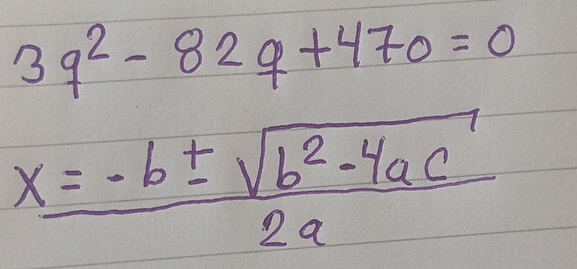 3q² - 82q + 470 = 0
x = -b ± √b² - 4ac
2a